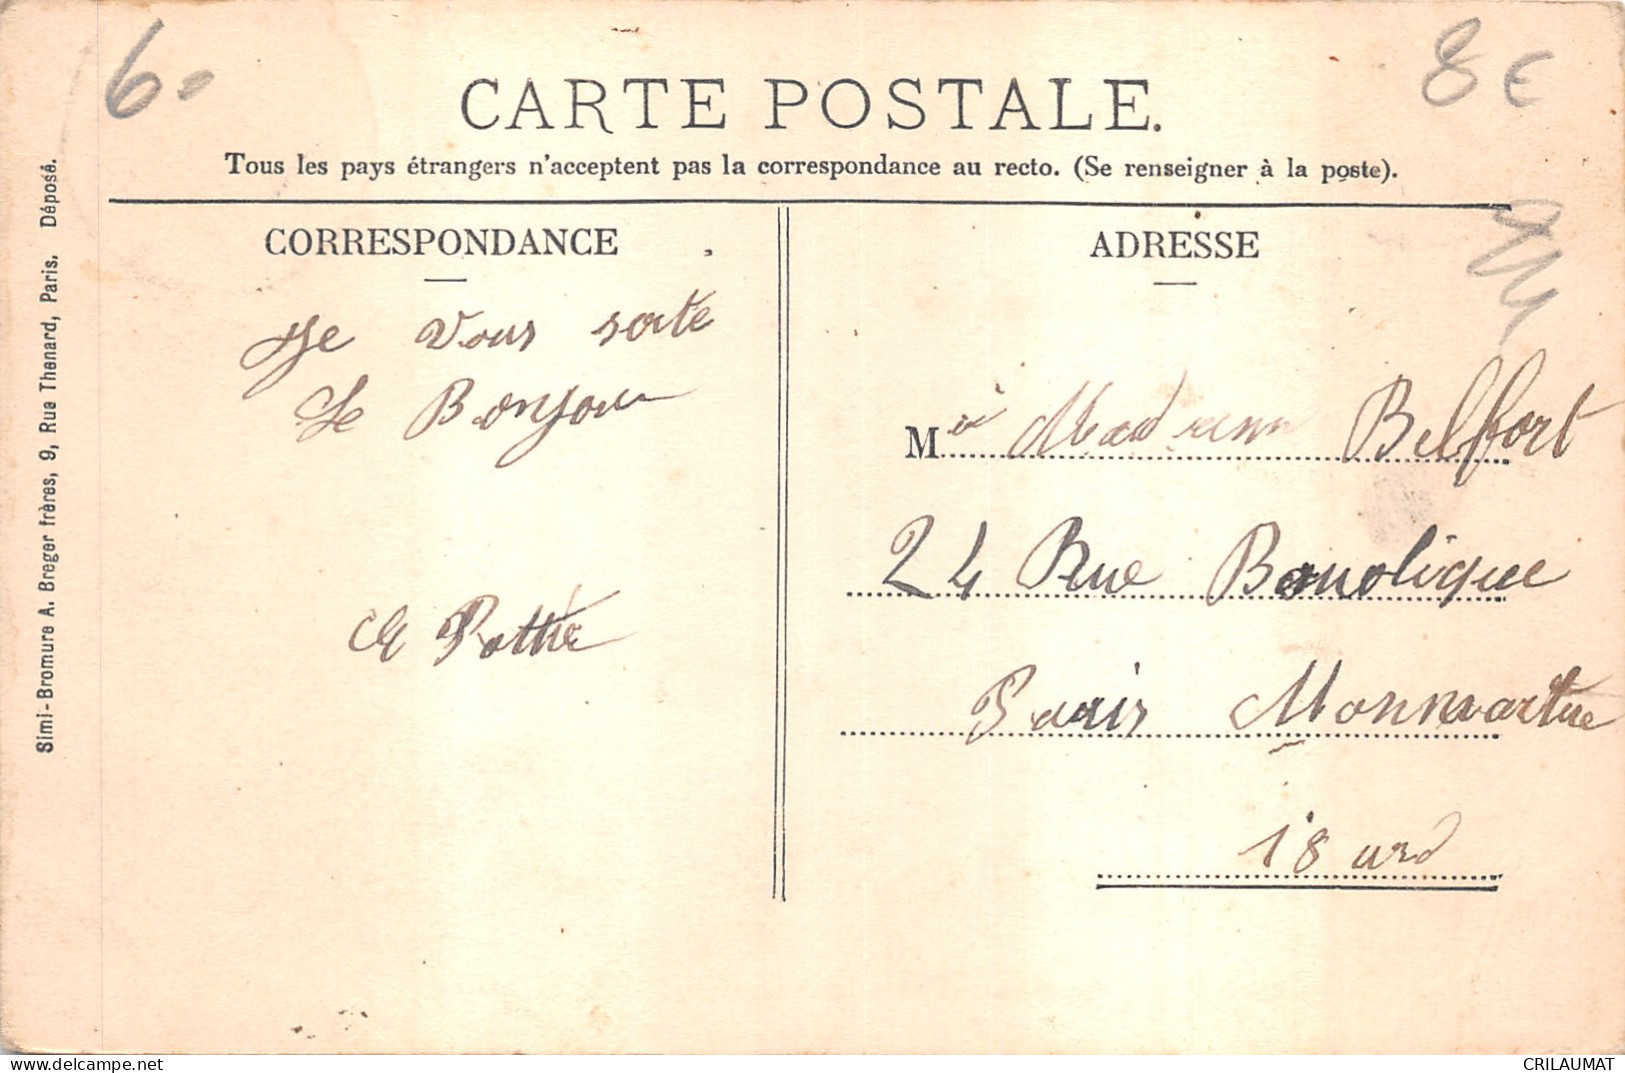 6
8 €
CARTE POSTALE.
Tous les pays étrangers n'acceptent pas la correspondance au recto. (Se renseigner à la poste).
CORRESPONDANCE
Je vous soite
Le Bonjour
Pottié
ADRESSE
M Belfort
24 Rue Banolique
Paris Monmartre
18 ard
Simi-Bromure A. Breger frères, 9, Rue Thenard, Paris. Déposé.
delcampe.net
CRILAUMAT